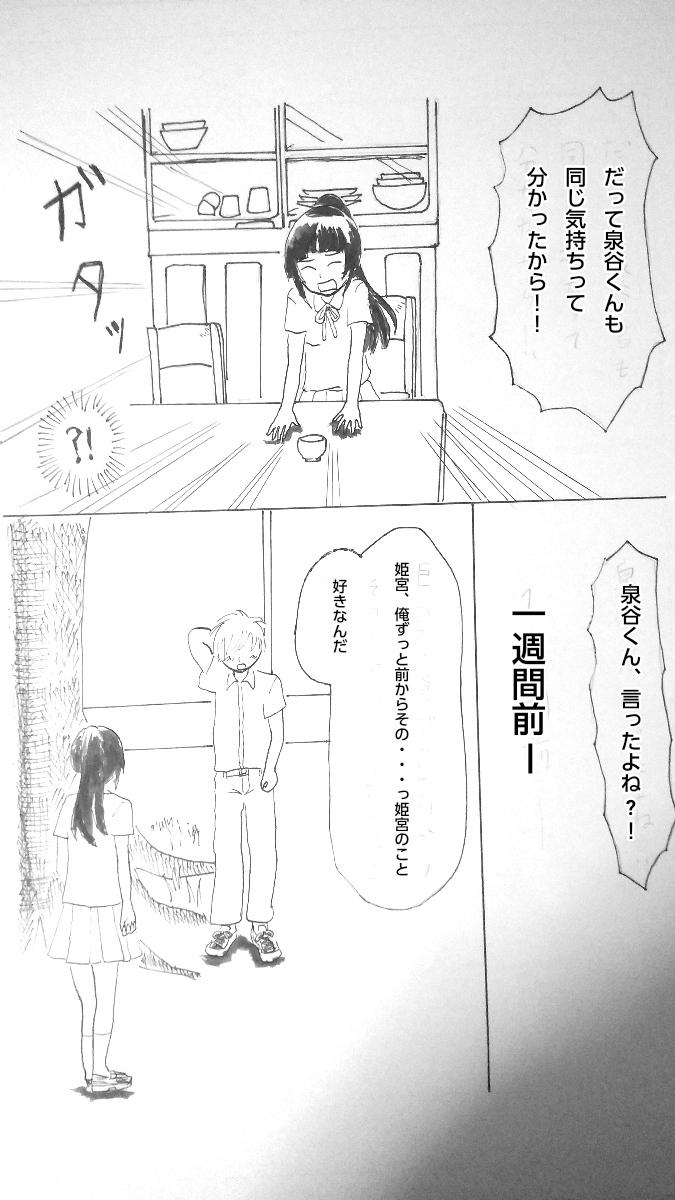 だって泉谷くんも
同じ気持ちって
分かったから！！
ガタッ
?!
泉谷くん、言ったよね？！
一週間前ー
姫宮、俺ずっと前からその・・・っ姫宮のこと
好きなんだ